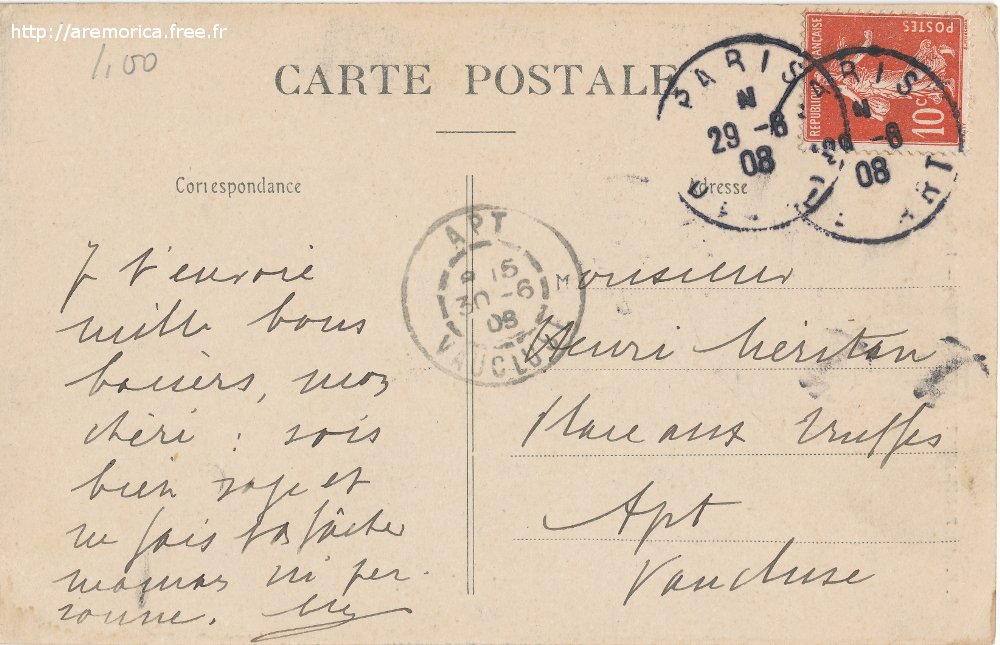 http://aremorica.free.fr
1,00
CARTE POSTALE
REPUBLIQUE FRANÇAISE
POSTES
10c
PARIS
29 -6
08
DEPART
PARIS
29 -6
08
DEPART
Correspondance
Adresse
APT
15
30 -6
08
VAUCLUSE
Je t'envoie
mille bons
baisers, mon
chéri : sois
bien sage et
ne fais pas fâcher
maman ni per-
sonne.
Monsieur
Henri Méritan
Place aux Truffes
Apt
Vaucluse